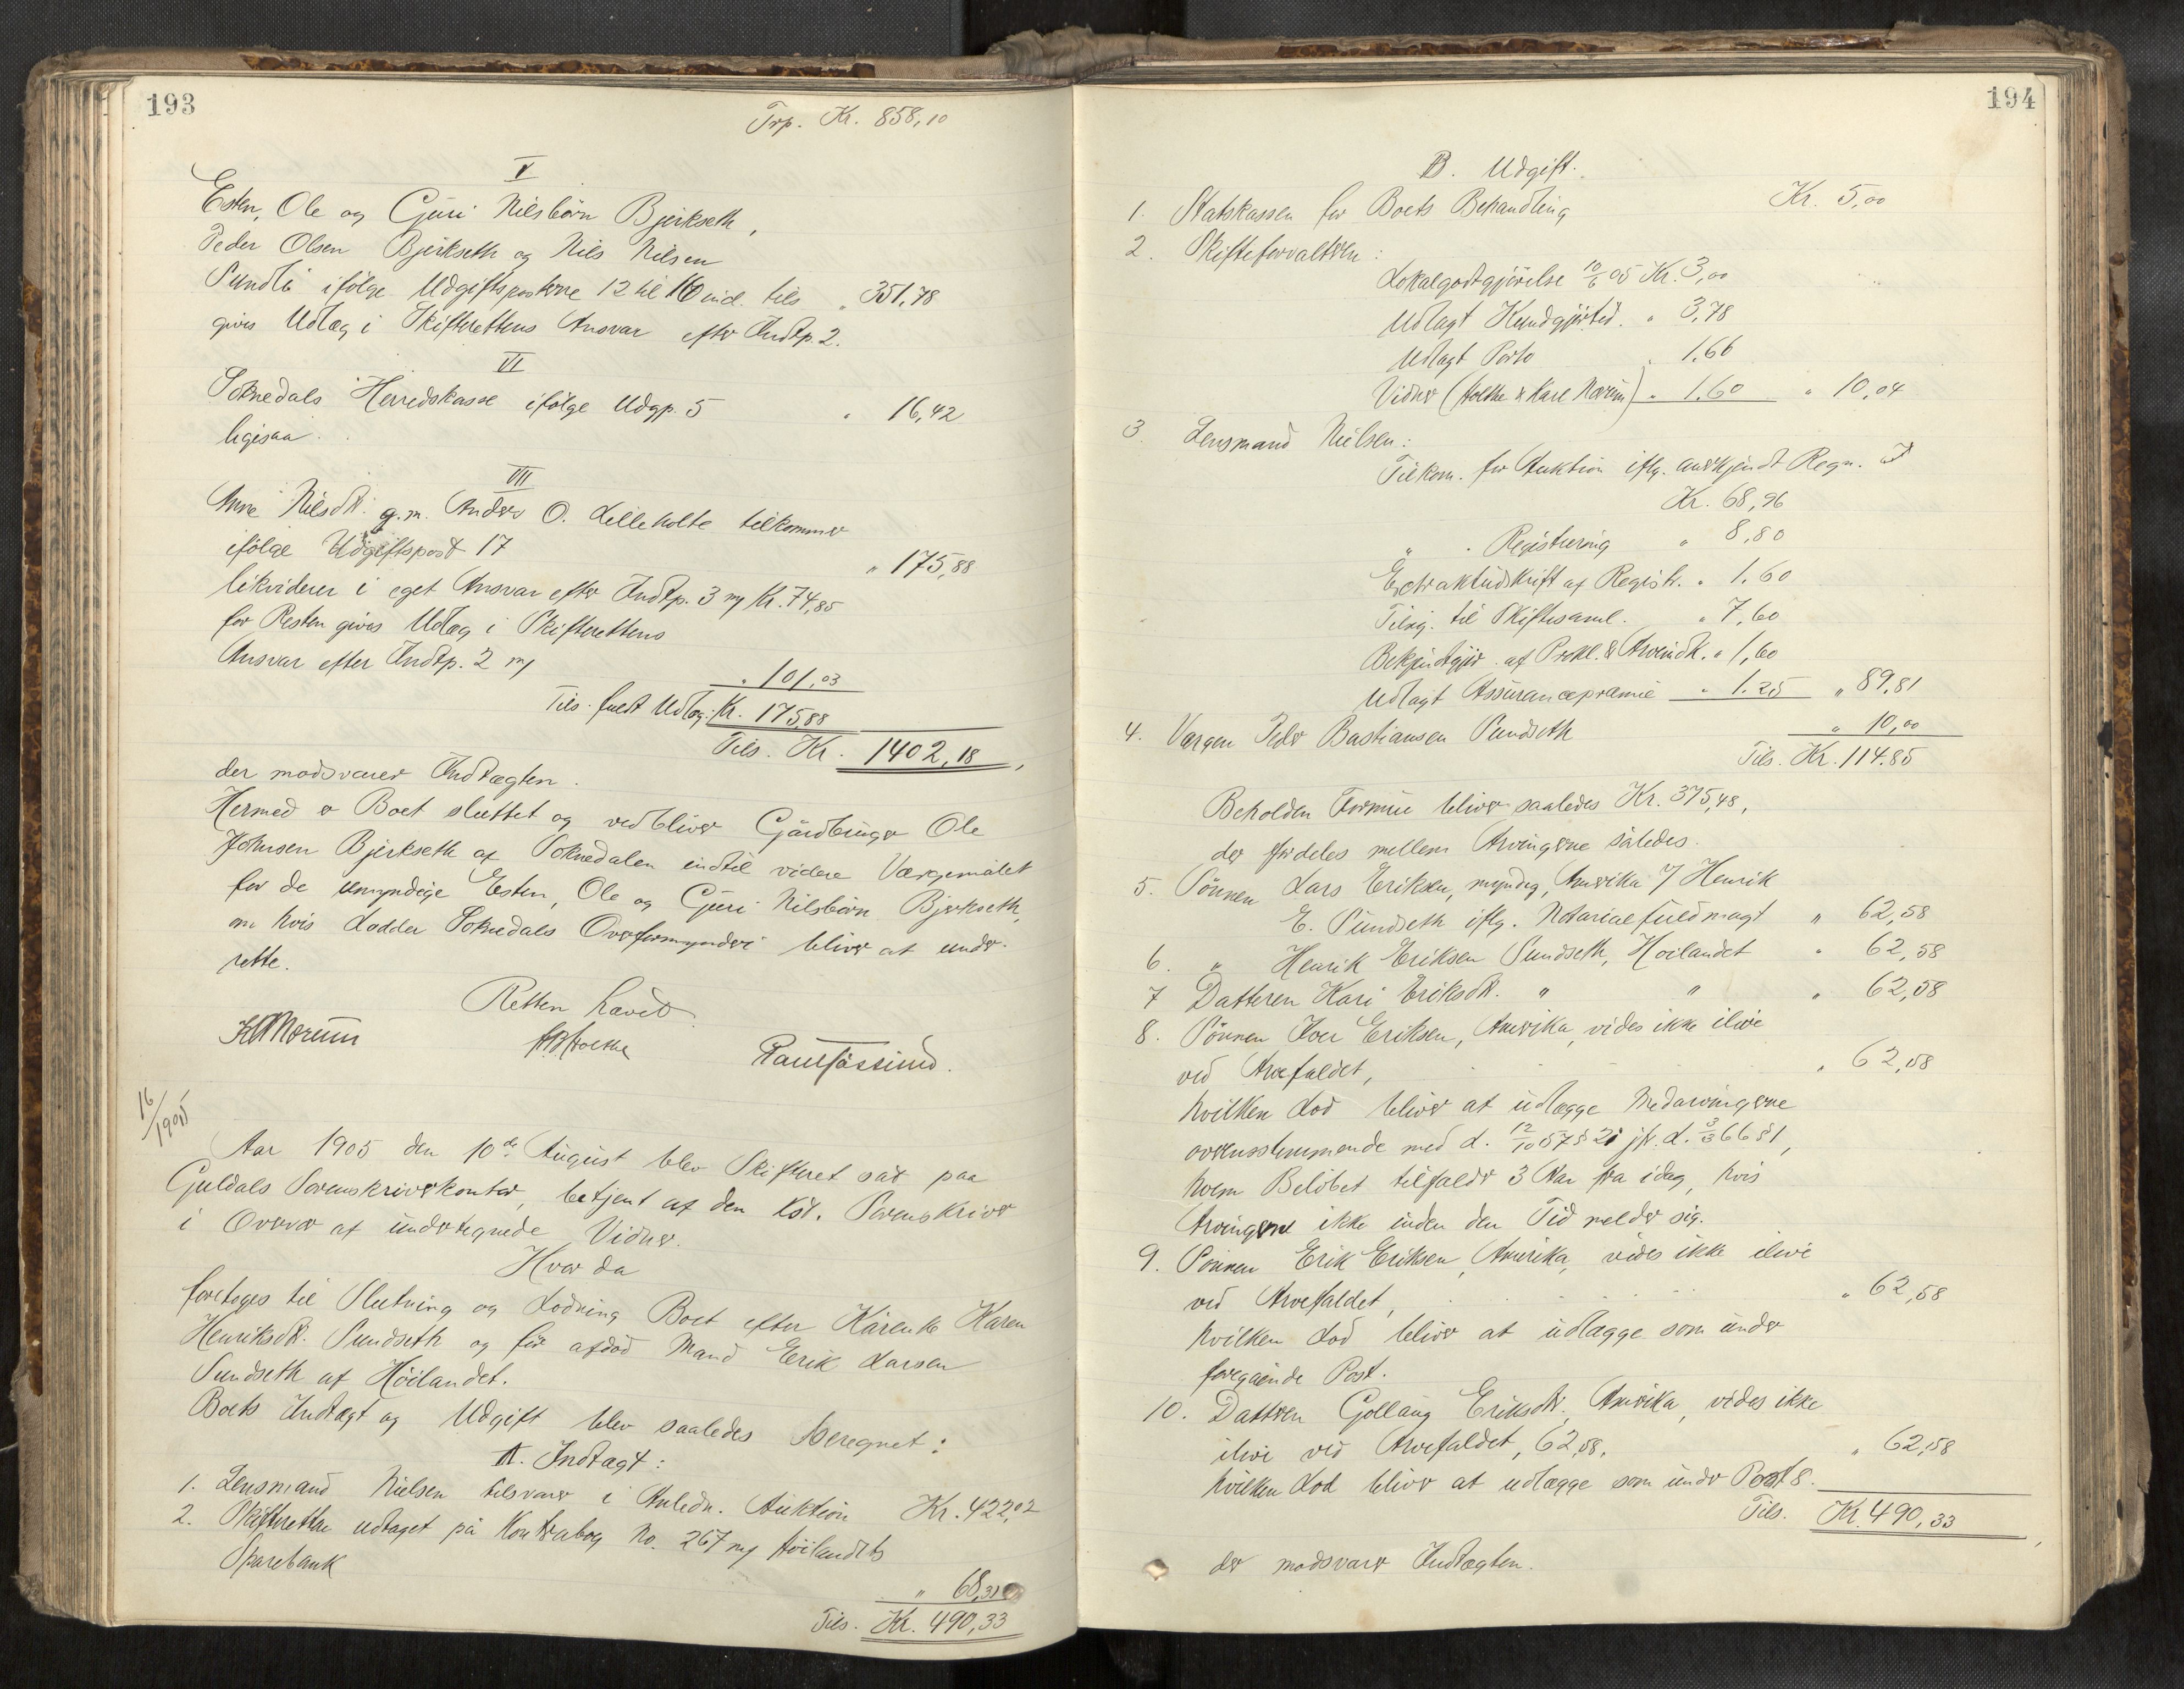 193
Trp. Kr. 858,10
V
Esten, Ole og Guri Nilsbörn Bjerkseth,
Peder Olsen Bjerkseth og Nils Nilsen
Sundli ifölge Udgiftsposterne 12 til 16 incl. tils " 351,78
gives Udlæg i Skifterettens Ansvar efter Indtp. 2.
VI
Soknedals Herredskasse ifölge Udgp. 5 " 16,42
ligesaa.
VII
Anne Nilsdtr. g.m. Anders O. Lilleholte tilkommer
ifölge Udgiftspost 17 " 175,88
likviderer i eget Ansvar efter Indtp. 3 Kr. 74,85
for Resten gives Udlæg i Skifterettens
Ansvar efter Indtp. 2 " 101,03
Tils. fuldt Udlæg: Kr. 175,88
Tils. Kr. 1402,18,
der modsvarer Indtægten.
Hermed er Boet sluttet og vedbliver Gårdbruger Ole
Johnsen Bjerkseth af Soknedalen indtil videre Værgemålet
for de umyndige Esten, Ole og Guri Nilsbörn Bjerkseth,
om hvis Lodder Soknedals Overformynderi bliver at under-
rette.
Retten hævet
16/1905
Aar 1905 den 10de August blev Skifteret sat paa
Guldals Sorenskriverkontor, betjent af den kst. Sorenskriver
i Overvær af undertegnede Vidner.
Hvor da
foretoges til Slutning og Lodning Boet efter Kårenke Karen
Henriksdtr. Sundseth og för afdöd Mand Erik Larsen
Sundseth af Höilandet.
Boets Indtægt og Udgift blev saaledes beregnet:
A. Indtægt:
1. Lensmand Nielsen tilsvarer i Anledn. Auktion Kr. 422,02
2. Skifteretten udtaget på Kontrabog No. 267 Höilandets
Sparebank " 68,31
Tils. Kr. 490,33
194
B. Udgift.
1. Statskassen for Boets Behandling Kr. 5,00
2. Skifteforvalteren:
Lokalgodtgjörelse 10/6 05 Kr. 3,00
Udlagt Kundgjörelse. " 3,78
Udlagt Porto " 1.66
Vidner (Holthe & Karl Morum) " 1.60 " 10,04
3. Lensmand Nielsen:
Tilkom. for Auktion iflg. anerkjendt Regn.
Kr. 68,96
" " Registrering " 8,80
Extraktudskrift af Registr. " 1.60
Tilsig. til Skiftesaml. " 7,60
Bekjendtgjör. af Prokl. & Arveindk. " 1,60
Udlagt Assurancepræmie " 1.25 " 89,81
4. Værgen Peder Bastiansen Sundseth " 10,00
Tils. Kr. 114.85
Beholden Formue bliver saaledes Kr. 375,48,
der fordeles mellem Arvingerne således.
5. Sönnen Lars Eriksen, myndig, Amerika v/ Henrik
E. Sundseth iflg. Notarialfuldmagt " 62,58
6. " Henrik Eriksen Sundseth, Höilandet " 62,58
7 Datteren Kari Eriksdtr. " " " 62,58
8. Sönnen Iver Eriksen, Amerika, vides ikke ilive
ved Arvefaldet, " 62,58
hvilken Lod bliver at udlægge Medarvingerne
overensstemmende med L. 12/10 57 § 21 jfr. L. 3/3 66 § 1,
hvem Belöbet tilfalder 3 Aar fra idag, hvis
Arvingerne ikke inden den Tid melder sig.
9. Sönnen Erik Eriksen, Amerika, vides ikke ilive
ved Arvefaldet, " 62,58
hvilken Lod bliver at udlægge som under
foregående Post.
10. Datteren Gollaug Eriksdtr, Amerika, vides ikke
ilive ved Arvefaldet, 62,58. " 62,58
hvilken Lod bliver at udlægge som under Post 8.
Tils. Kr. 490,33,
der modsvarer Indtægten.